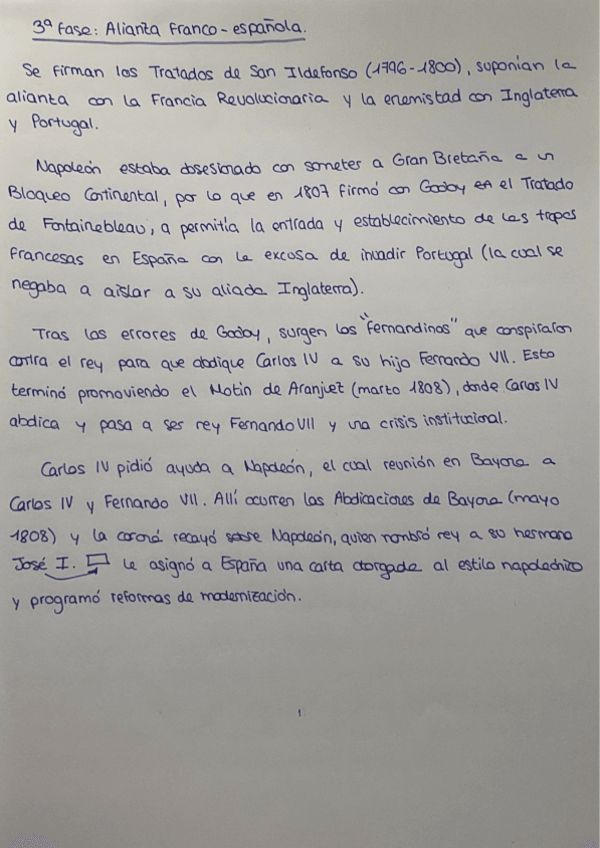 3ª Fase: Alianza Franco-española.
Se firman los Tratados de San Ildefonso (1796-1800), suponían la
alianza con la Francia Revolucionaria y la enemistad con Inglaterra
y Portugal.
Napoleón estaba obsesionado con someter a Gran Bretaña a un
Bloqueo Continental, por lo que en 1807 firmó con Godoy en el Tratado
de Fontainebleau, a permitía la entrada y establecimiento de las tropas
francesas en España con la excusa de invadir Portugal (la cual se
negaba a aislar a su aliada Inglaterra).
Tras los errores de Godoy, surgen los "fernandinos" que conspiraron
contra el rey para que abdique Carlos IV a su hijo Fernando VII. Esto
terminó promoviendo el Motín de Aranjuez (marzo 1808), donde Carlos IV
abdica y pasa a ser rey Fernando VII y una crisis institucional.
Carlos IV pidió ayuda a Napoleón, el cual reunión en Bayona a
Carlos IV y Fernando VII. Allí ocurren las Abdicaciones de Bayona (mayo
1808) y la coroná recayó sobre Napoleón, quien nombró rey a su hermano
José I. le asignó a España una carta otorgada al estilo napoleónico
y programó reformas de modernización.